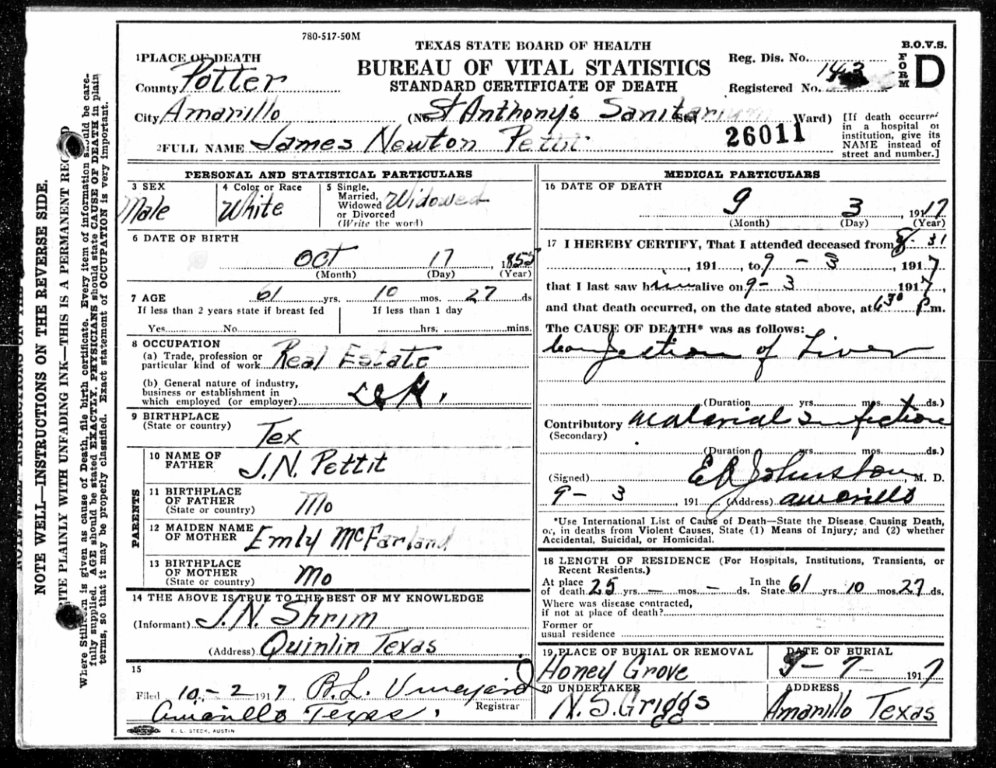 780-517-50M
TEXAS STATE BOARD OF HEALTH
BUREAU OF VITAL STATISTICS
STANDARD CERTIFICATE OF DEATH
B.O.V.S.
FORM D
Reg. Dis. No.
Registered No. 143
1 PLACE OF DEATH
County Potter
City Amarillo (No. St Anthony's Sanitarium Ward)
[If death occurred in a hospital or institution, give its NAME instead of street and number.]
26011
2 FULL NAME James Newton Pettit
PERSONAL AND STATISTICAL PARTICULARS
3 SEX
Male
4 Color or Race
White
5 Single, Married, Widowed or Divorced (Write the word)
Widowed
6 DATE OF BIRTH
Oct 17 1855
(Month) (Day) (Year)
7 AGE 61 yrs. 10 mos. 27 ds
If less than 2 years state if breast fed
Yes No
If less than 1 day
hrs. mins.
8 OCCUPATION
(a) Trade, profession or particular kind of work Real Estate
(b) General nature of industry, business or establishment in which employed (or employer)
9 BIRTHPLACE
(State or country)
Tex
PARENTS
10 NAME OF FATHER
J.N. Pettit
11 BIRTHPLACE OF FATHER
(State or country)
Mo
12 MAIDEN NAME OF MOTHER Emly McFarland
13 BIRTHPLACE OF MOTHER
(State or country)
Mo
14 THE ABOVE IS TRUE TO THE BEST OF MY KNOWLEDGE
(Informant) J.N. Shrim
(Address) Quinlin Texas
15
Filed 10-2 1917 R.L. Vineyard
Registrar
Amarillo Texas.
E. L. STECK, AUSTIN
MEDICAL PARTICULARS
16 DATE OF DEATH
9 3 1917
(Month) (Day) (Year)
17 I HEREBY CERTIFY, That I attended deceased from 8-31
, 191 , to 9-3 , 1917
that I last saw him alive on 9-3 1917,
and that death occurred, on the date stated above, at 6 30 P m.
The CAUSE OF DEATH* was as follows:
of Liver
(Duration yrs. mos. ds.)
Contributory Malarial Infection
(Secondary)
(Duration yrs. mos. ds.)
(Signed) E A Johnston, M. D.
9-3 191 (Address) Amarillo
*Use International List of Cause of Death—State the Disease Causing Death, or, in deaths from Violent Causes, State (1) Means of Injury; and (2) whether Accidental, Suicidal, or Homicidal.
18 LENGTH OF RESIDENCE (For Hospitals, Institutions, Transients, or Recent Residents.)
At place of death 25 yrs. — mos. — ds. In the State 61 yrs. 10 mos. 27 ds.
Where was disease contracted, if not at place of death?
Former or usual residence
19 PLACE OF BURIAL OR REMOVAL
Honey Grove
DATE OF BURIAL
9-7- 1917
20 UNDERTAKER
N.S. Griggs
ADDRESS
Amarillo Texas
NOTE WELL—INSTRUCTIONS ON THE REVERSE SIDE.
PLAINLY WITH UNFADING INK—THIS IS A PERMANENT
is given as cause of Death, file birth certificate. Every item of information should be carefully supplied. AGE should be stated EXACTLY. PHYSICIANS should state CAUSE OF DEATH in plain terms, so that it may be properly classified. Exact statement of OCCUPATION is very important.